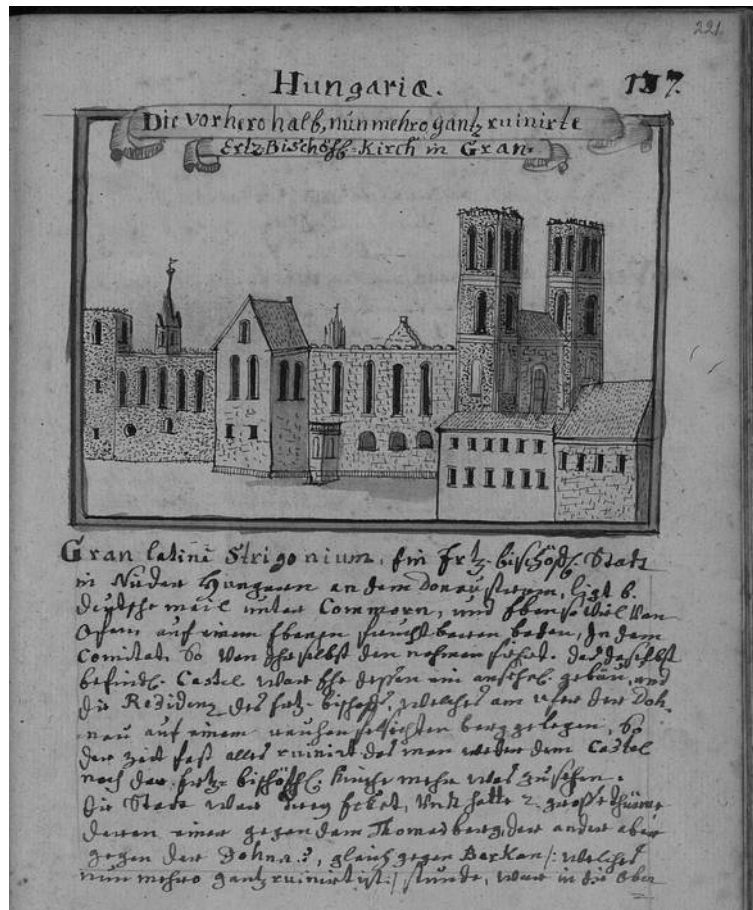 221.
Hungariæ.
137.
Die vorhero halb, nunmehro gantz ruinirte
Ertz-Bischöffl-Kirch in Gran.
Gran latinè Strigonium, Ein Ertz-bischöffl. Statt
in Nieder Hungarn an dem Donau strom, ligt 6.
deutsche meil unter Commorn, und Ebenso viel von
Ofen auf einem Ebenen fruchtbaren boden, In dem
Comitat, so von Ihr selbst den nahmen führet. das daselbst
befindl. Castel war Ehe dessen ein ansehl. gebäu, und
die Residenz des Ertz-bischoffs, welches am ufer der Doh-
nau auf einem rauhen felsichten berg gelegen, so
der zeit fast alles ruinirt das man weder dem Castel
noch der Ertz-bischöffl. Kirche mehr was zusehen.
die Statt war drey Ecket, Und hatte 2. große thürme
deren einer gegen dem Thomasberg, der ander aber
gegen der Dohnau, gleich gegen Barkan /: welches
nun mehro gantz ruinirt ist :/ stunde, war in die ober